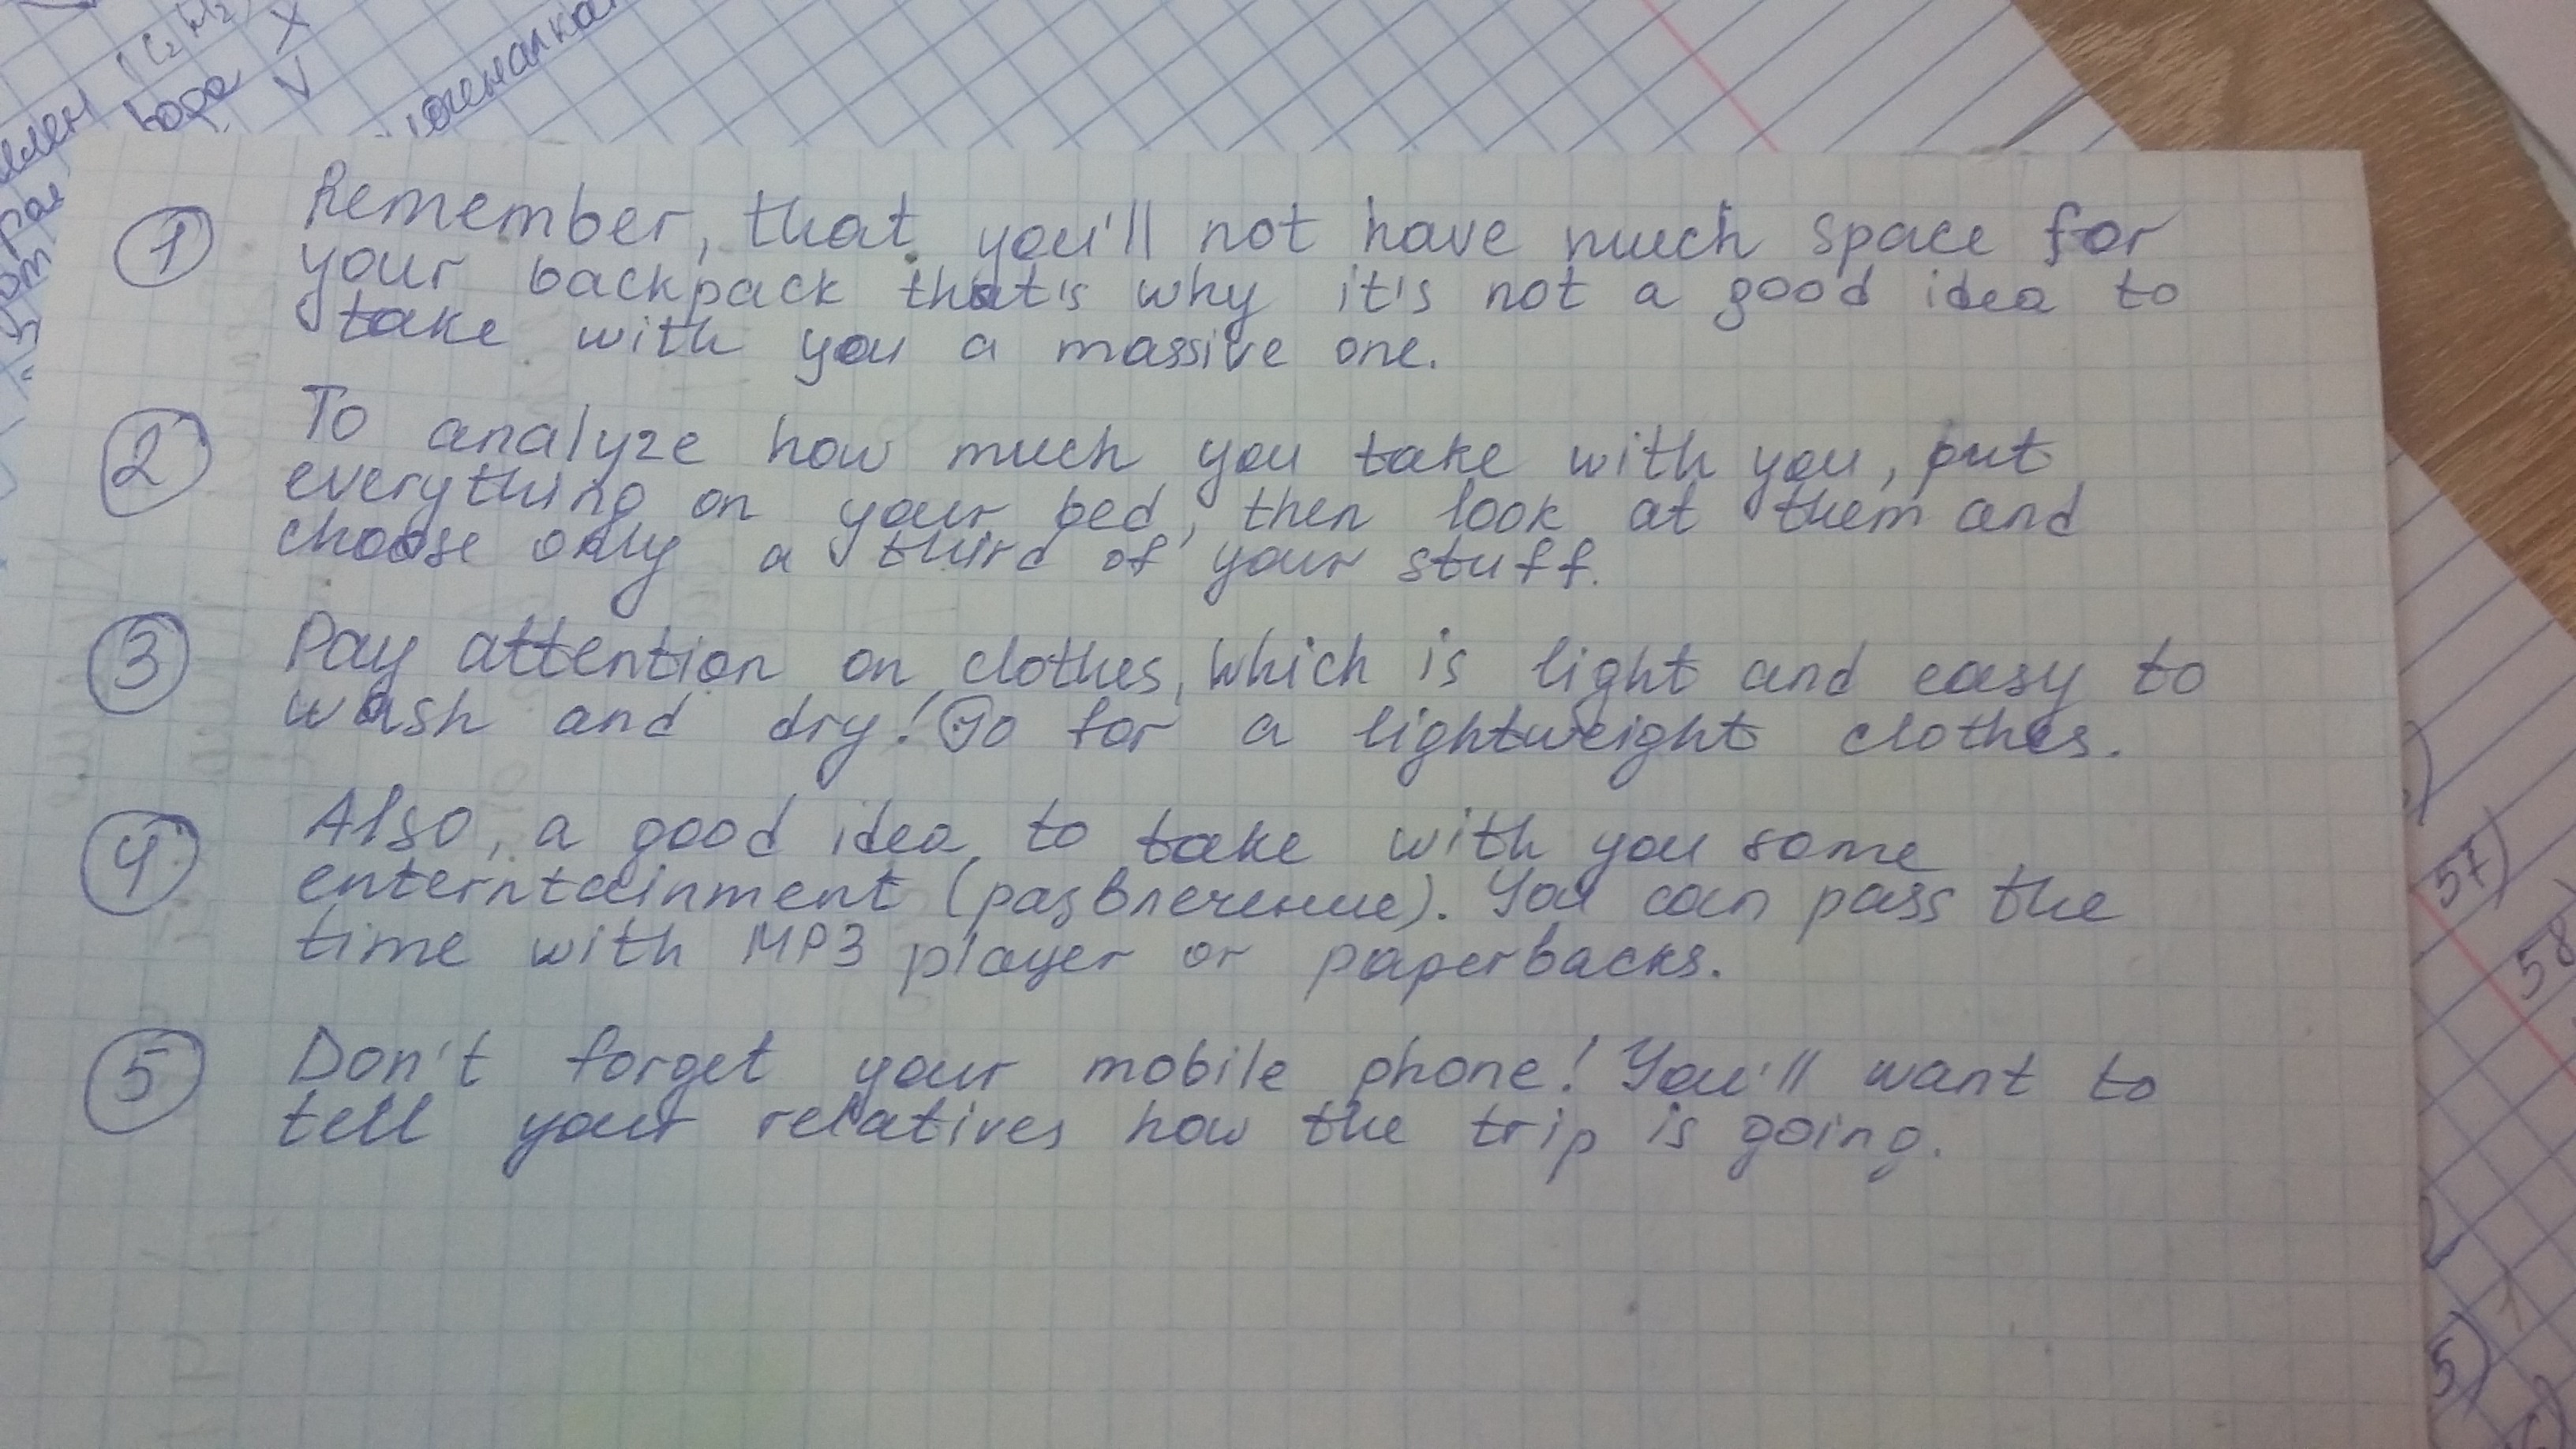 вора
X
V
① Remember, that you'll not have much space for
your backpack that's why it's not a good idea to
take with you a massive one.
② To analyze how much you take with you, put
everything on your bed, then look at them and
choose only a third of your stuff.
③ Pay attention on clothes, which is light and easy to
wash and dry! Go for a lightweight clothes.
④ Also, a good idea to take with you some
enterntainment (развлечение). You can pass the
time with MP3 player or paperbacks.
⑤ Don't forget your mobile phone! You'll want to
tell your relatives how the trip is going.
57)
58
5)